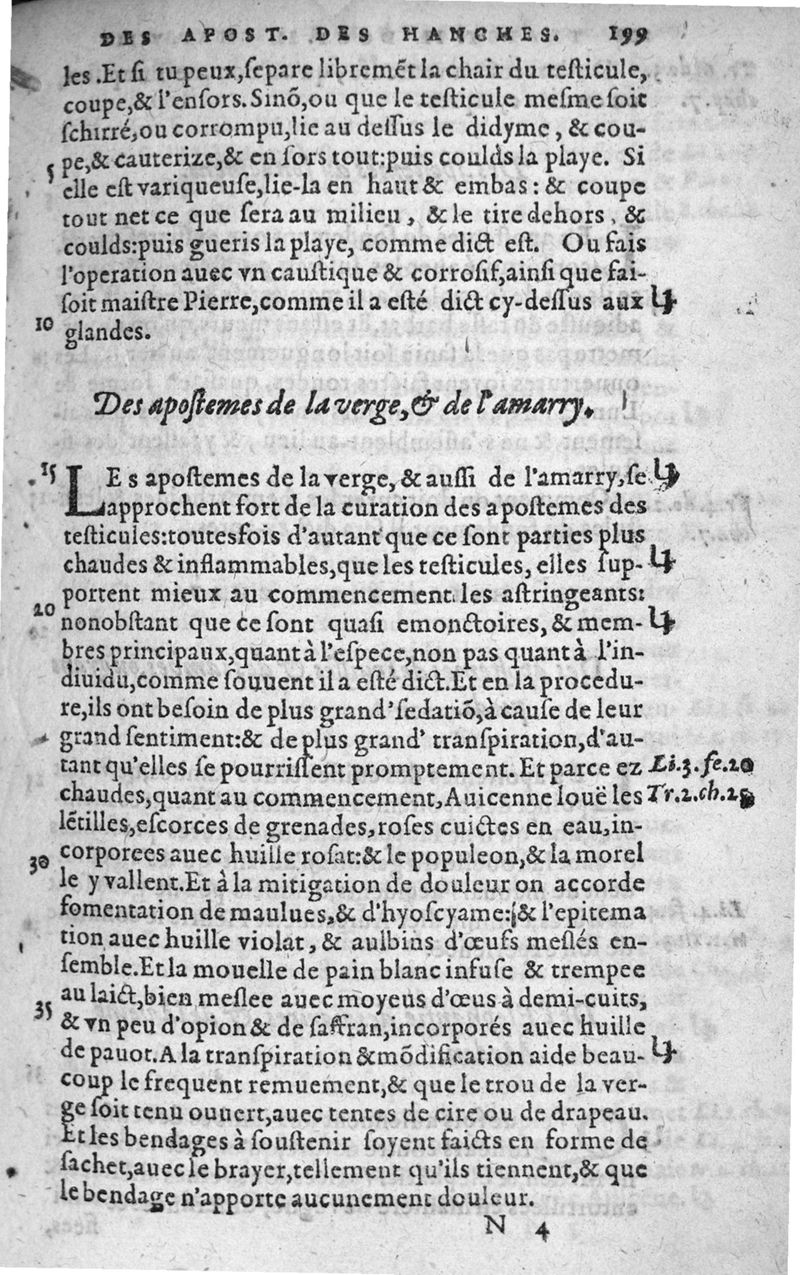 DES APOST. DES HANCHES. 199
les. Et ſi tu peux, ſepare libremēt la chair du teſticule,
coupe, & l'enſors. Sinō, ou que le teſticule meſme ſoit
ſchirré, ou corrompu, lie au deſſus le didyme, & cou-
5 pe, & cauterize, & en ſors tout: puis coulds la playe. Si
elle eſt variqueuſe, lie-la en haut & embas: & coupe
tout net ce que ſera au milieu, & le tire dehors, &
coulds: puis gueris la playe, comme dict eſt. Ou fais
l'operation auec vn cauſtique & corroſif, ainſi que fai-
ſoit maiſtre Pierre, comme il a eſté dict cy-deſſus aux
10 glandes.
Des apoſtemes de la verge, & de l'amarry.
15 LEs apoſtemes de la verge, & auſſi de l'amarry, ſe
approchent fort de la curation des apoſtemes des
teſticules: toutesfois d'autant que ce ſont parties plus
chaudes & inflammables, que les teſticules, elles ſup-
portent mieux au commencement les aſtringeants:
20 nonobſtant que ce ſont quaſi emonctoires, & mem-
bres principaux, quant à l'eſpece, non pas quant à l'in-
diuidu, comme ſouuent il a eſté dict. Et en la procedu-
re, ils ont beſoin de plus grand' ſedatiō, à cauſe de leur
grand ſentiment: & de plus grand' tranſpiration, d'au-
tant qu'elles ſe pourriſſent promptement. Et parce ez Li.3.fe.20
chaudes, quant au commencement, Auicenne louë les Tr.2.ch.
lētilles, eſcorces de grenades, roſes cuictes en eau, in-
30 corporees auec huille roſat: & le populeon, & la morel
le y vallent. Et à la mitigation de douleur on accorde
fomentation de maulues, & d'hyoſcyame: & l'epitema
tion auec huille violat, & aulbins d'œufs meſlés en-
ſemble. Et la mouelle de pain blanc infuſe & trempee
35 au laict, bien meſlee auec moyeus d'œus à demi-cuits,
& vn peu d'opion & de ſaffran, incorporés auec huille
de pauot. A la tranſpiration & mōdification aide beau-
coup le frequent remuement, & que le trou de la ver-
ge ſoit tenu ouuert, auec tentes de cire ou de drapeau.
Et les bendages à ſouſtenir ſoyent faicts en forme de
ſachet, auec le brayer, tellement qu'ils tiennent, & que
le bendage n'apporte aucunement douleur.
N 4